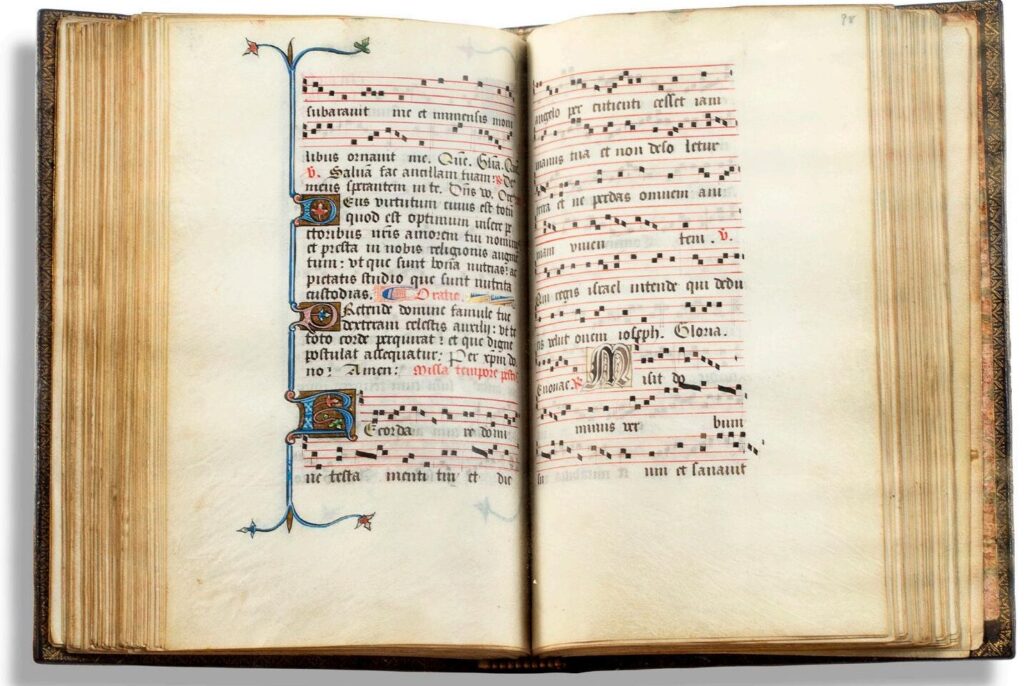 subarauit me et inmensis moni
libus ornauit me. Que. Glia. Que
v. Saluā fac ancillam tuam: de
meus sperantem in te. Dn̄s vo. Ore
Deus virtutum cuius est totū
quod est optimum insere pe
ctoribus nr̄is amorem tui nominis
et presta in nobis religionis augm̄
tum: vt que sunt bona nutrias: ac
pietatis studio que sunt nutrita
custodias. Oratio.
Pretende domine famule tue
dexteram celestis auxilij: vt te
toto corde perquirat: et que digne
postulat assequatur: Per xp̄m do
no: Amen: Missa tempore pestis
Recorda re domi
ne testa menti tui et dic
angelo per cutienti cesset iam
manus tua et non deso letur
terra et ne perdas omnem ani
mam viuen tem. v.
Qui regis israel intende qui dedu
cis velut ouem ioseph. Gloria.
Euouae. Misit do
minus ver bum
su um et sanauit
98